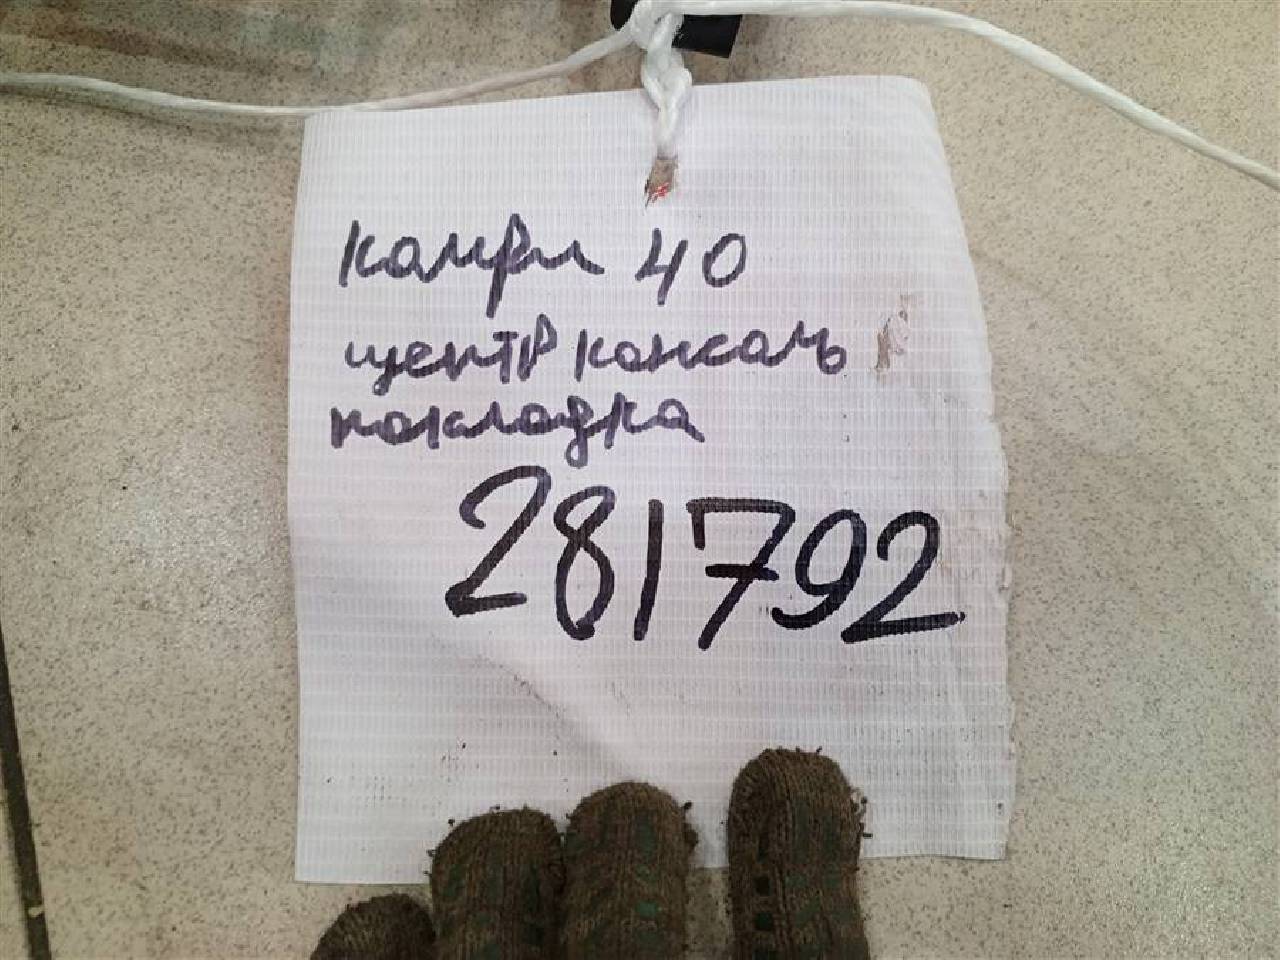 камри 40
центр консоль
накладка
281792